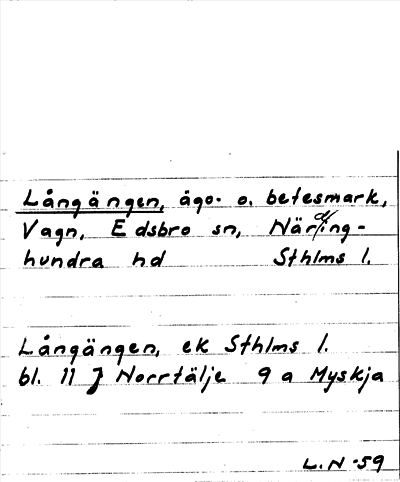 Långängen, ägo- o. betesmark,
Vagn, Edsbro sn, Närding-
hundra hd Sthlms l.
Långängen, ek Sthlms l.
bl. 11 J Norrtälje 9 a Myskja
L.N -59